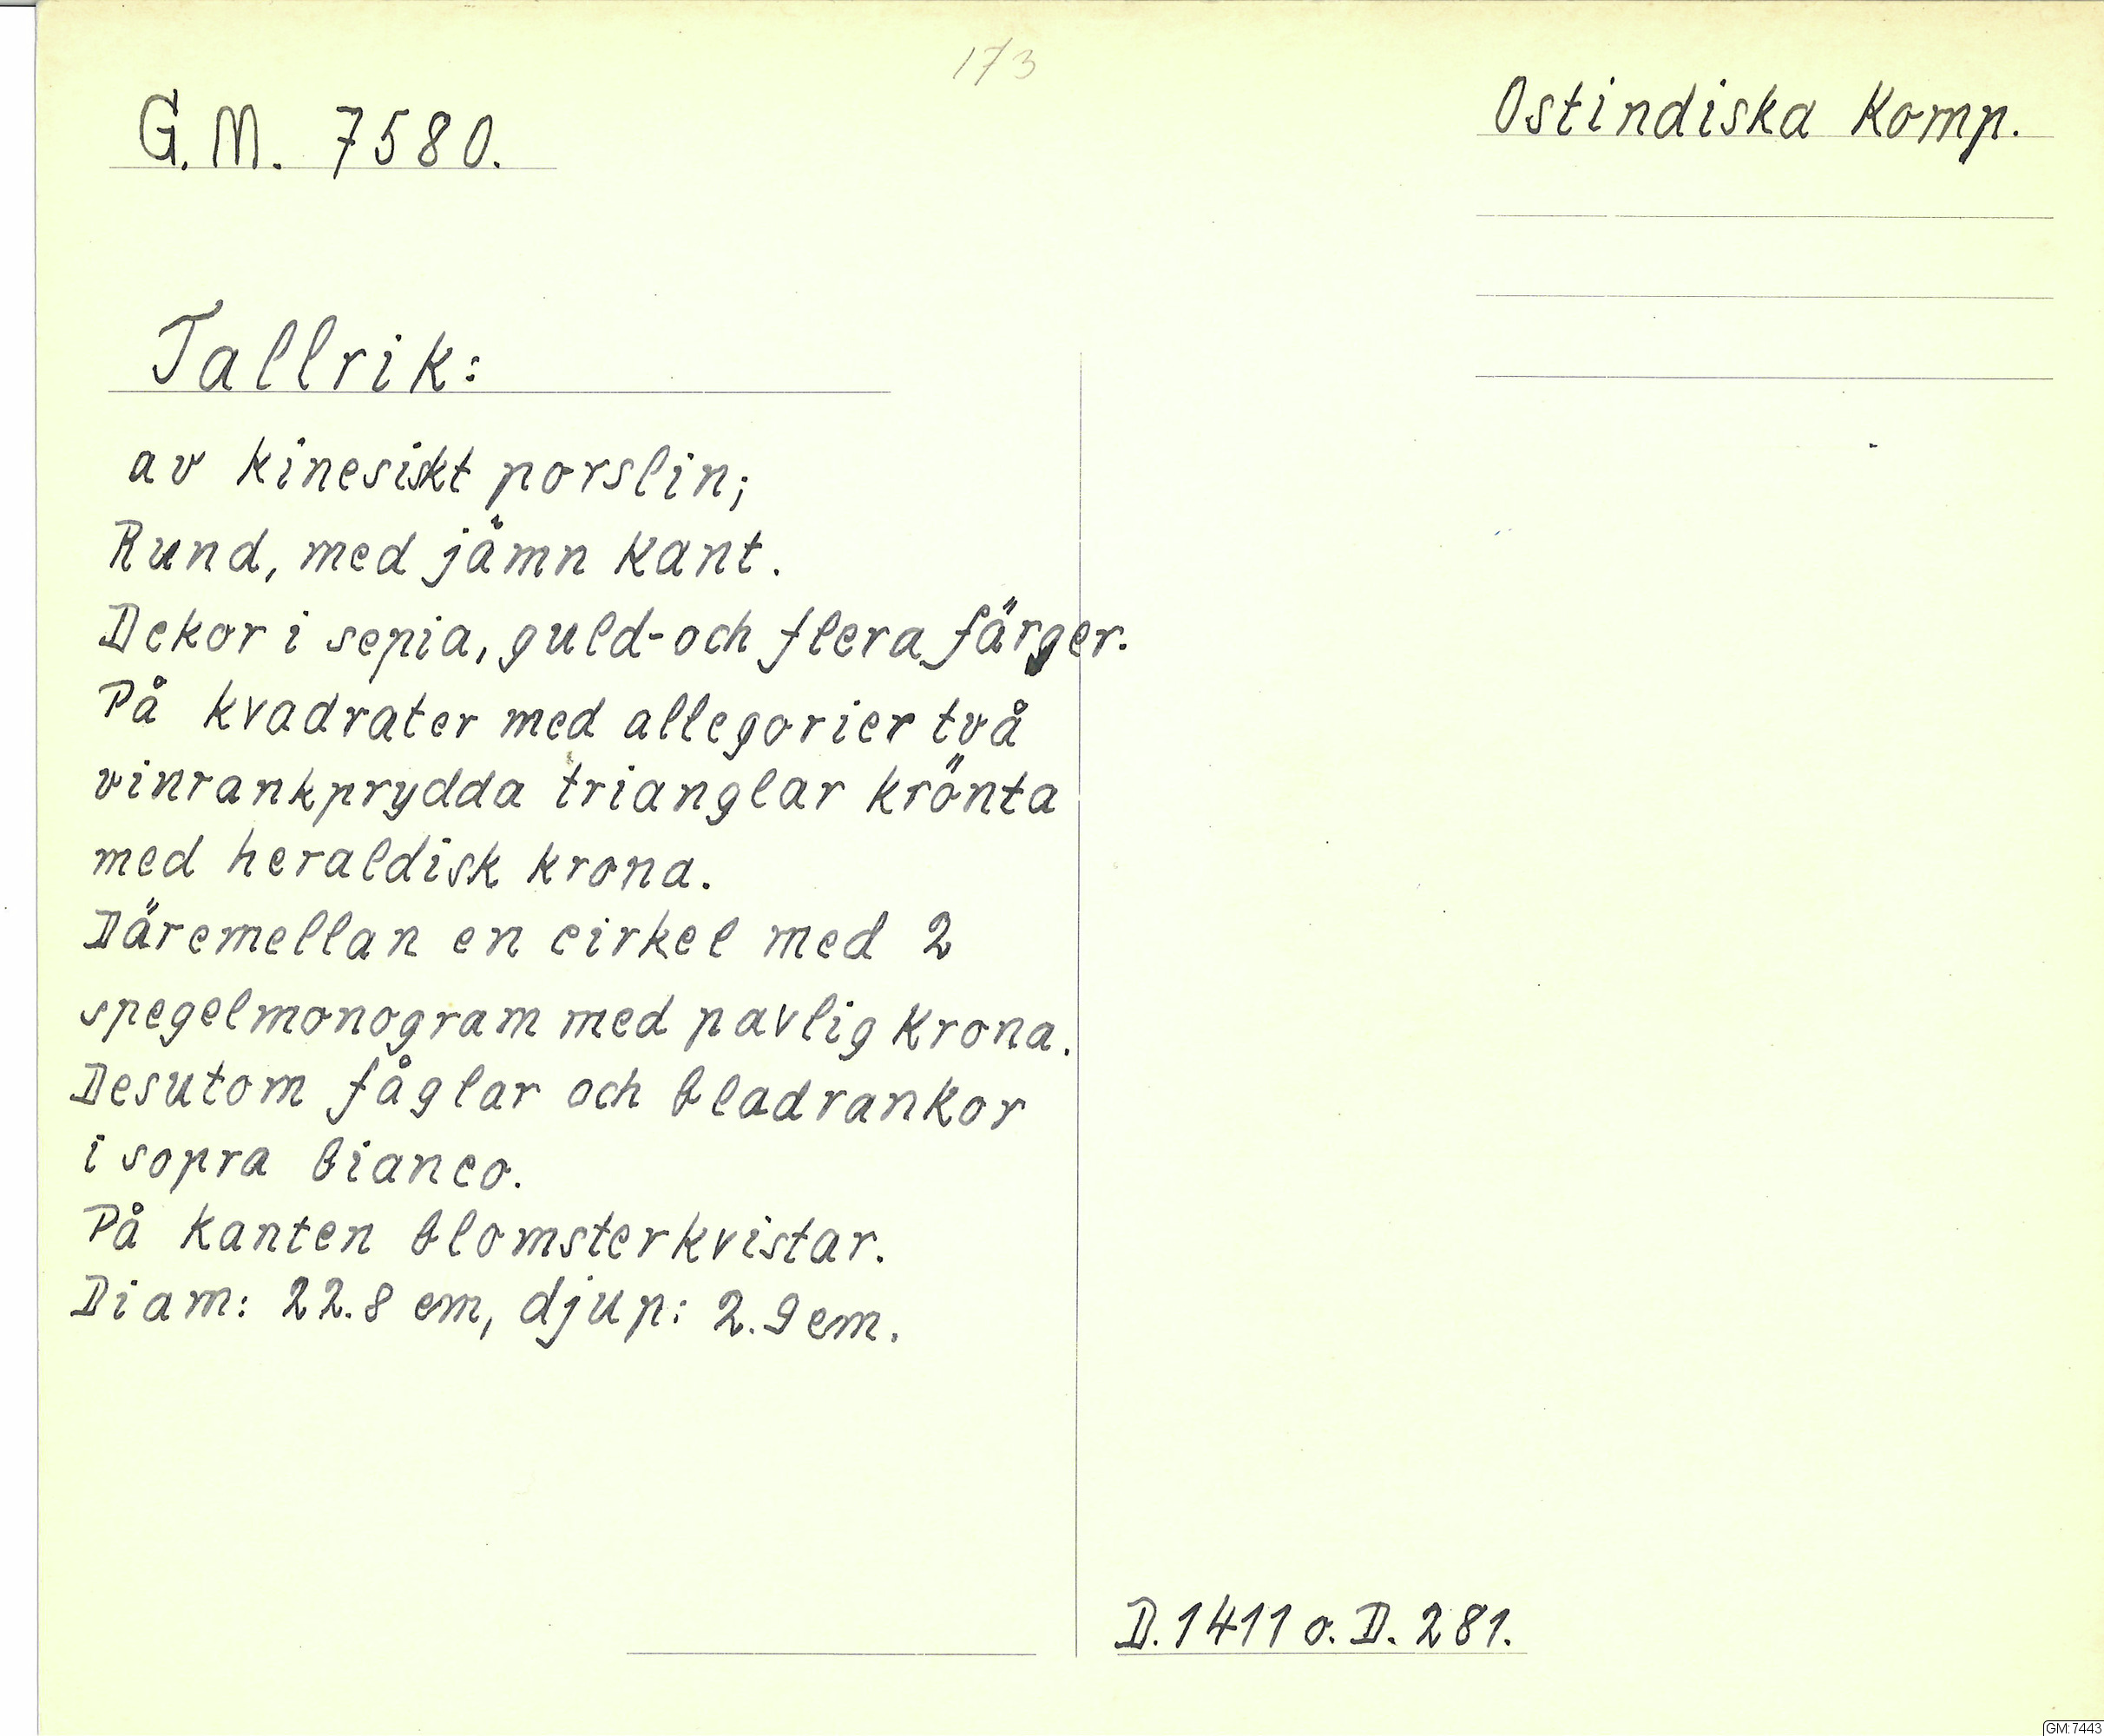 173
G.M. 7580.
Ostindiska Komp.
Tallrik:
av kinesiskt porslin;
Rund, med jämn kant.
Dekor i sepia, guld- och flera färger.
På kvadrater med allegorier två
vinrankprydda trianglar krönta
med heraldisk krona.
Däremellan en cirkel med 2
spegelmonogram med pavlig krona.
Desutom fåglar och bladrankor
i sopra bianco.
På kanten blomsterkvistar.
Diam: 22.8 cm, djup: 2.9 cm.
D. 1411 o. D. 281.
GM:7443